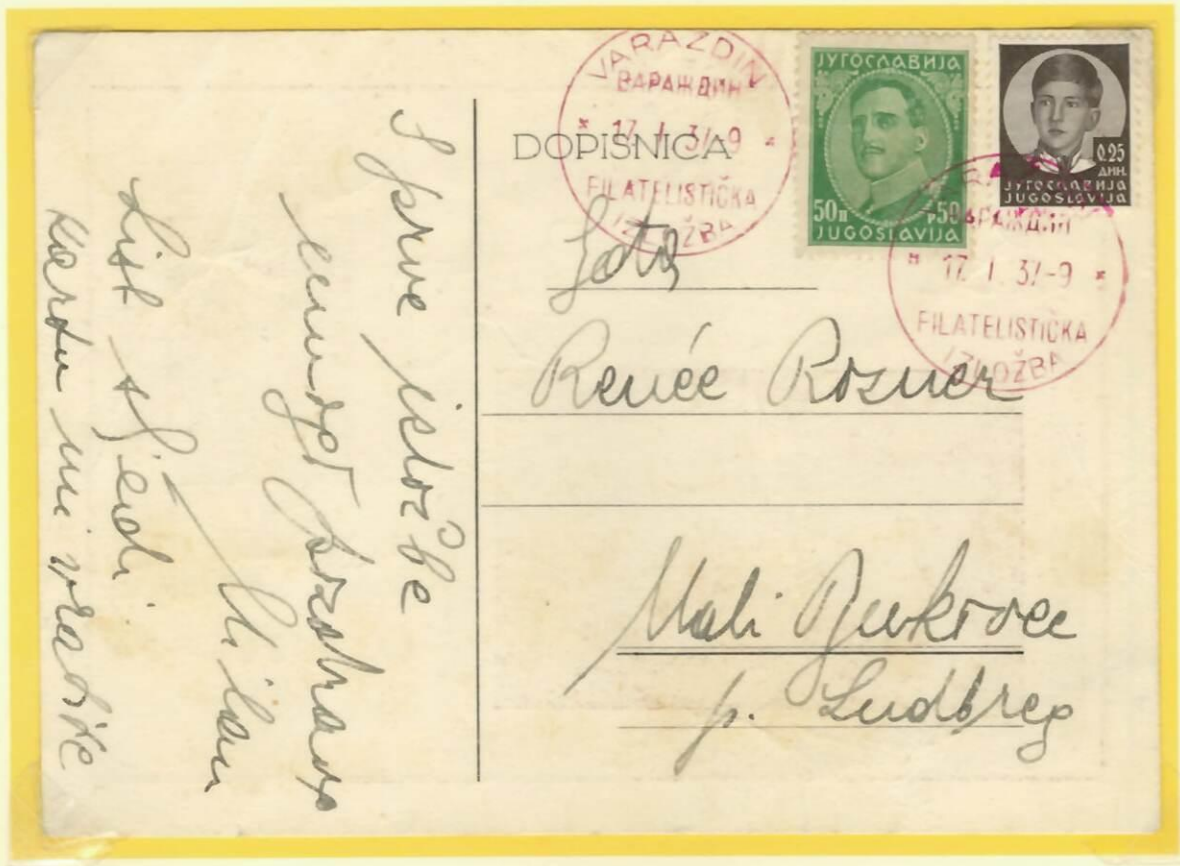 VARAZDIN
ВАРАЖДИН
* 17. I. 37-9 *
FILATELISTIČKA
IZLOŽBA
DOPISNICA
ЈУГОСЛАВИЈА
50П Р50
JUGOSLAVIJA
0.25
ДИН.
ЈУГОСЛАВИЈА
JUGOSLAVIJA
ВАРАЖДИН
* 17. I. 37-9 *
FILATELISTIČKA
IZLOŽBA
Renée Rosner
Mali Bukovec
p. Ludbreg
S prve izložbe
mnogo pozdrava
Milan
List sljedi
kartu mi vratite